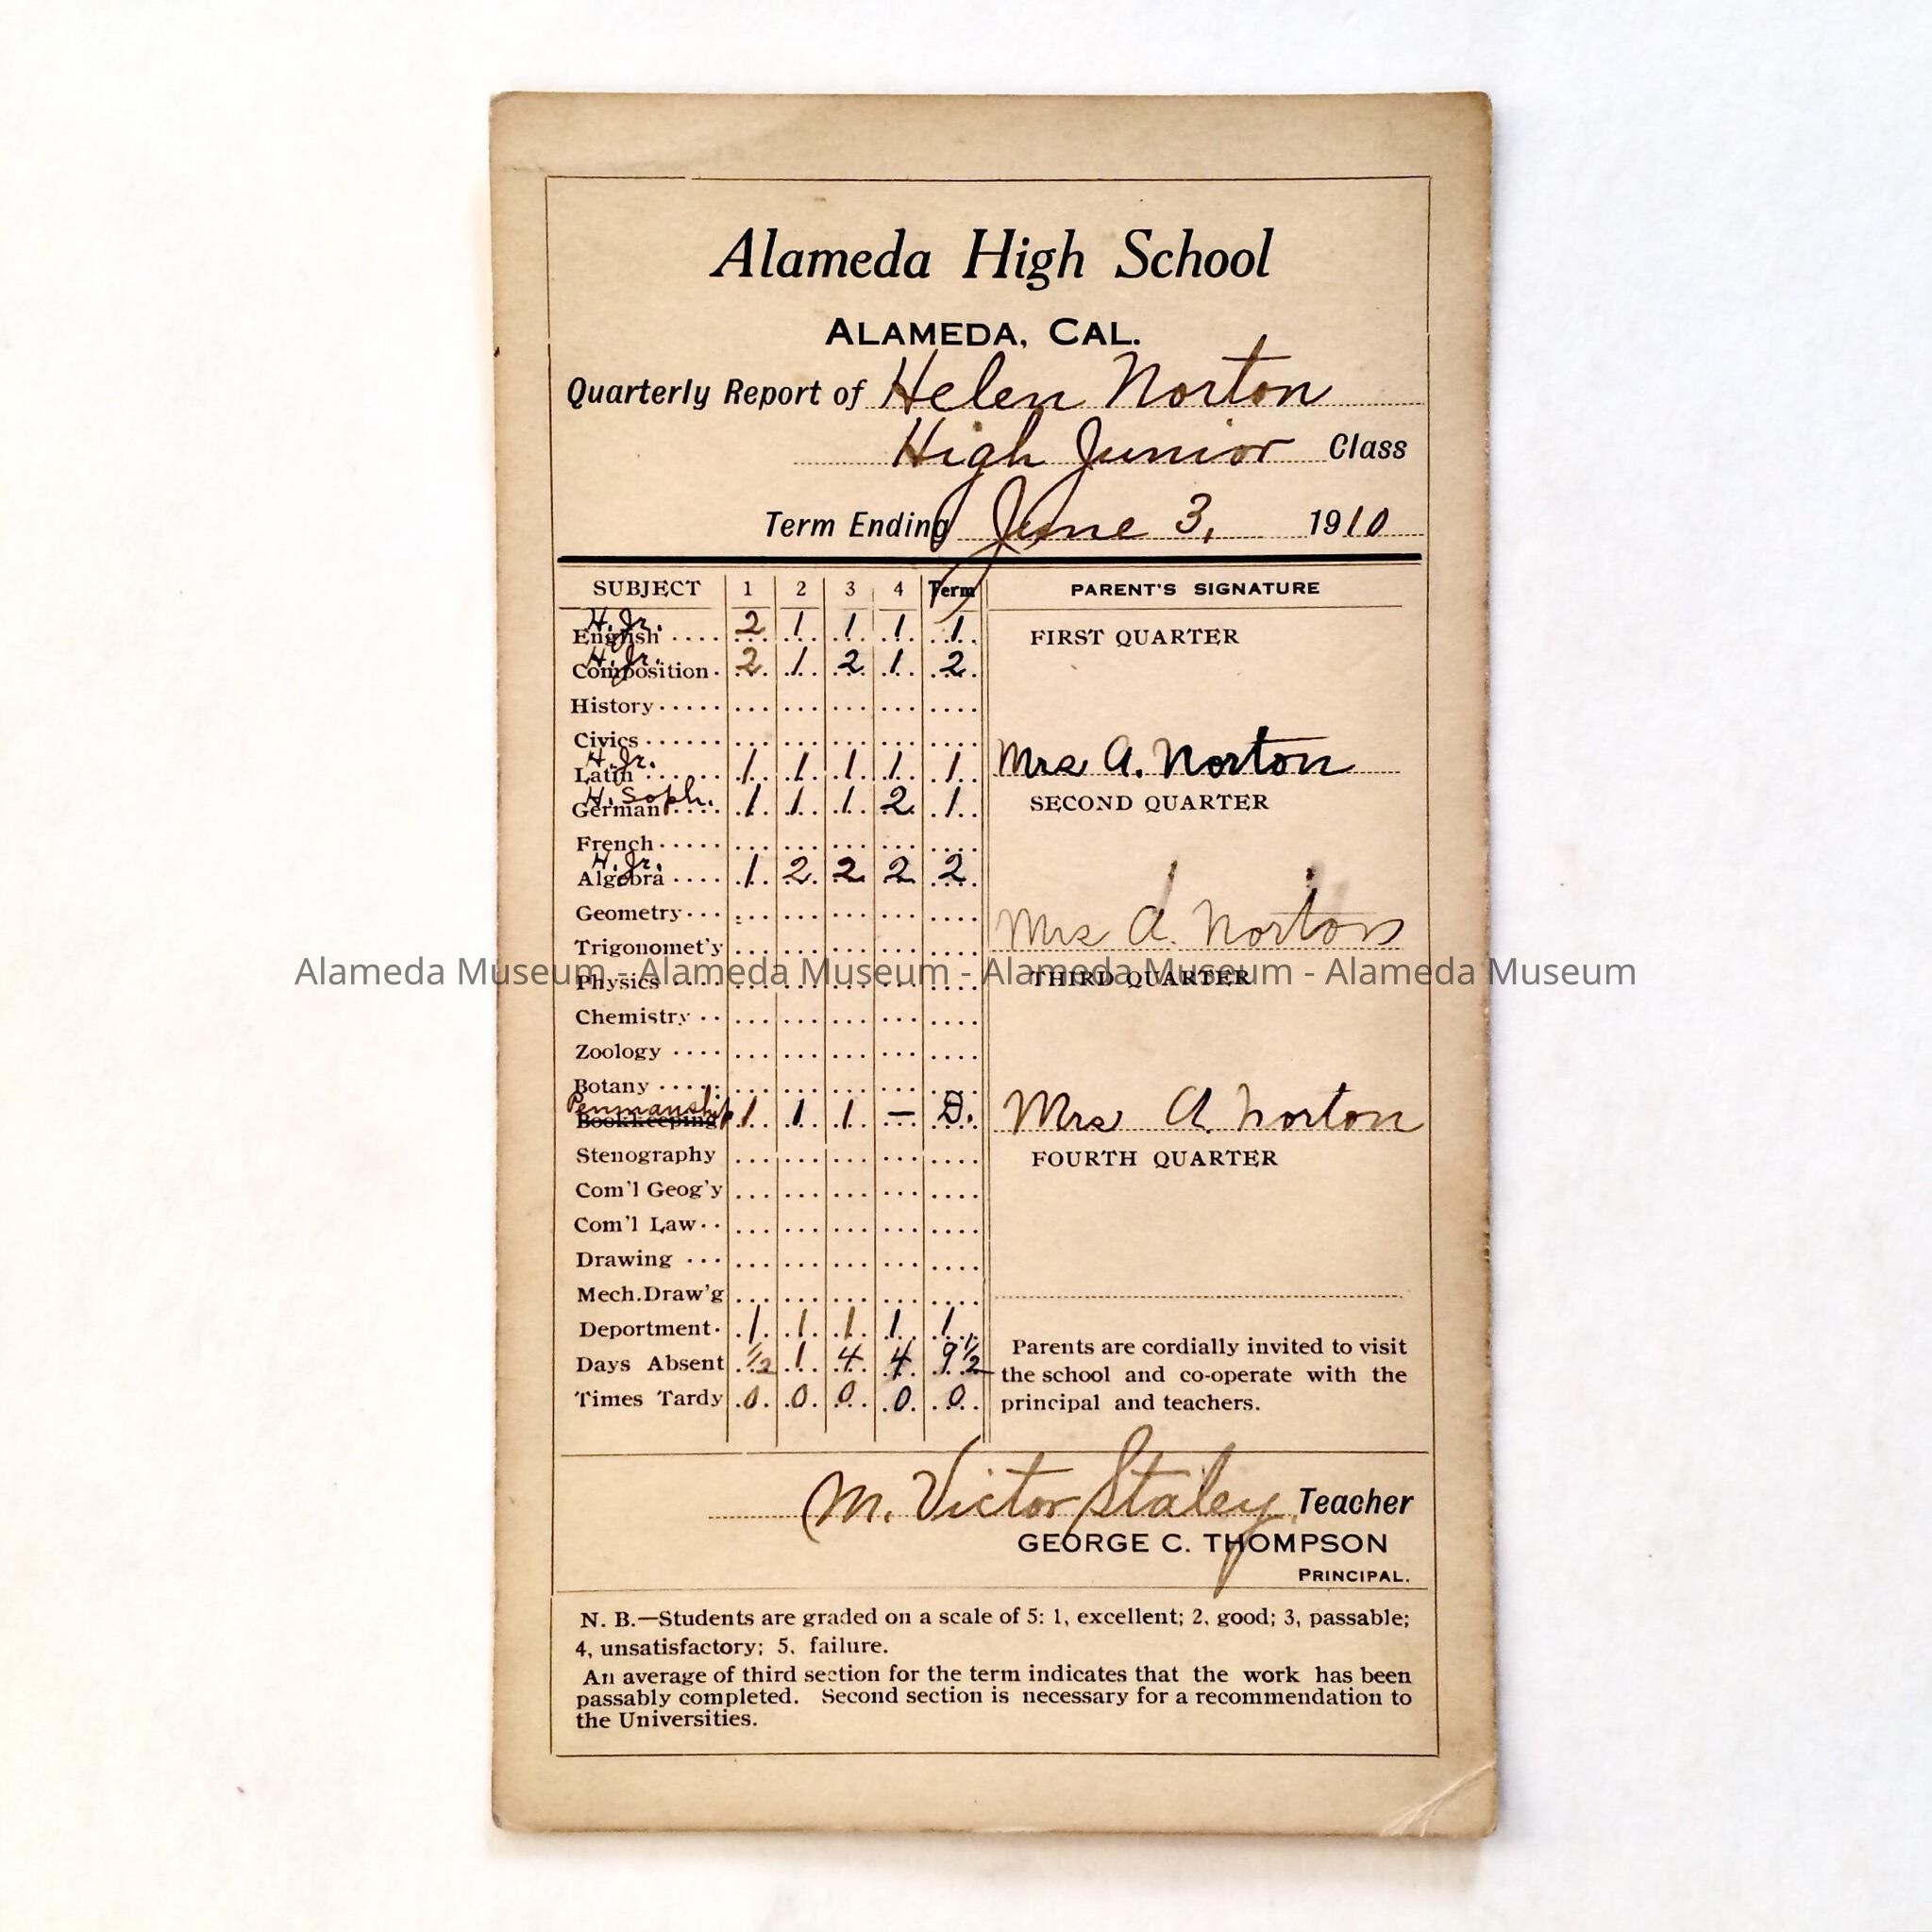 Alameda High School
ALAMEDA, CAL.
Quarterly Report of Helen Norton
High Junior Class
Term Ending June 3, 1910
SUBJECT 1 2 3 4 Term PARENT'S SIGNATURE
H. Jr.
English 2 1 1 1 1 FIRST QUARTER
H. Jr.
Composition 2 1 2 1 2
History
Civics
Mrs A. Norton
H. Jr.
Latin 1 1 1 1 1
H. Soph.
German 1 1 1 2 1 SECOND QUARTER
French
H. Jr.
Algebra 1 2 2 2 2
Geometry
Mrs A. Norton
Trigonomet'y
Alameda Museum - Alameda Museum - Alameda Museum - Alameda Museum
Physics THIRD QUARTER
Chemistry
Zoology
Botany
Penmanship 1 1 1 — Mrs A. Norton
Bookkeeping
Stenography FOURTH QUARTER
Com'l Geog'y
Com'l Law
Drawing
Mech.Draw'g
Deportment 1 1 1 1 1
Days Absent 1/2 1 4 4 9 1/2
Times Tardy 0 0 0 0 0
Parents are cordially invited to visit
the school and co-operate with the
principal and teachers.
M. Victor Staley Teacher
GEORGE C. THOMPSON
PRINCIPAL.
N. B.—Students are graded on a scale of 5: 1, excellent; 2, good; 3, passable;
4, unsatisfactory; 5, failure.
An average of third section for the term indicates that the work has been
passably completed. Second section is necessary for a recommendation to
the Universities.